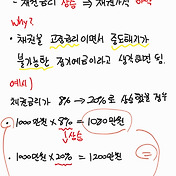 - 채권금리 상승 ⇒ 채권가격 하락
why?
• 채권을 고정금리이면서 중도해지가
불가능한 정기예금이라고 생각하면 됨.
예시)
채권금리가 8% → 20%로 상승했을 경우
• 1000만원 × 8% = 1080만원
↓상승
• 1000만원 × 20% = 1200만원